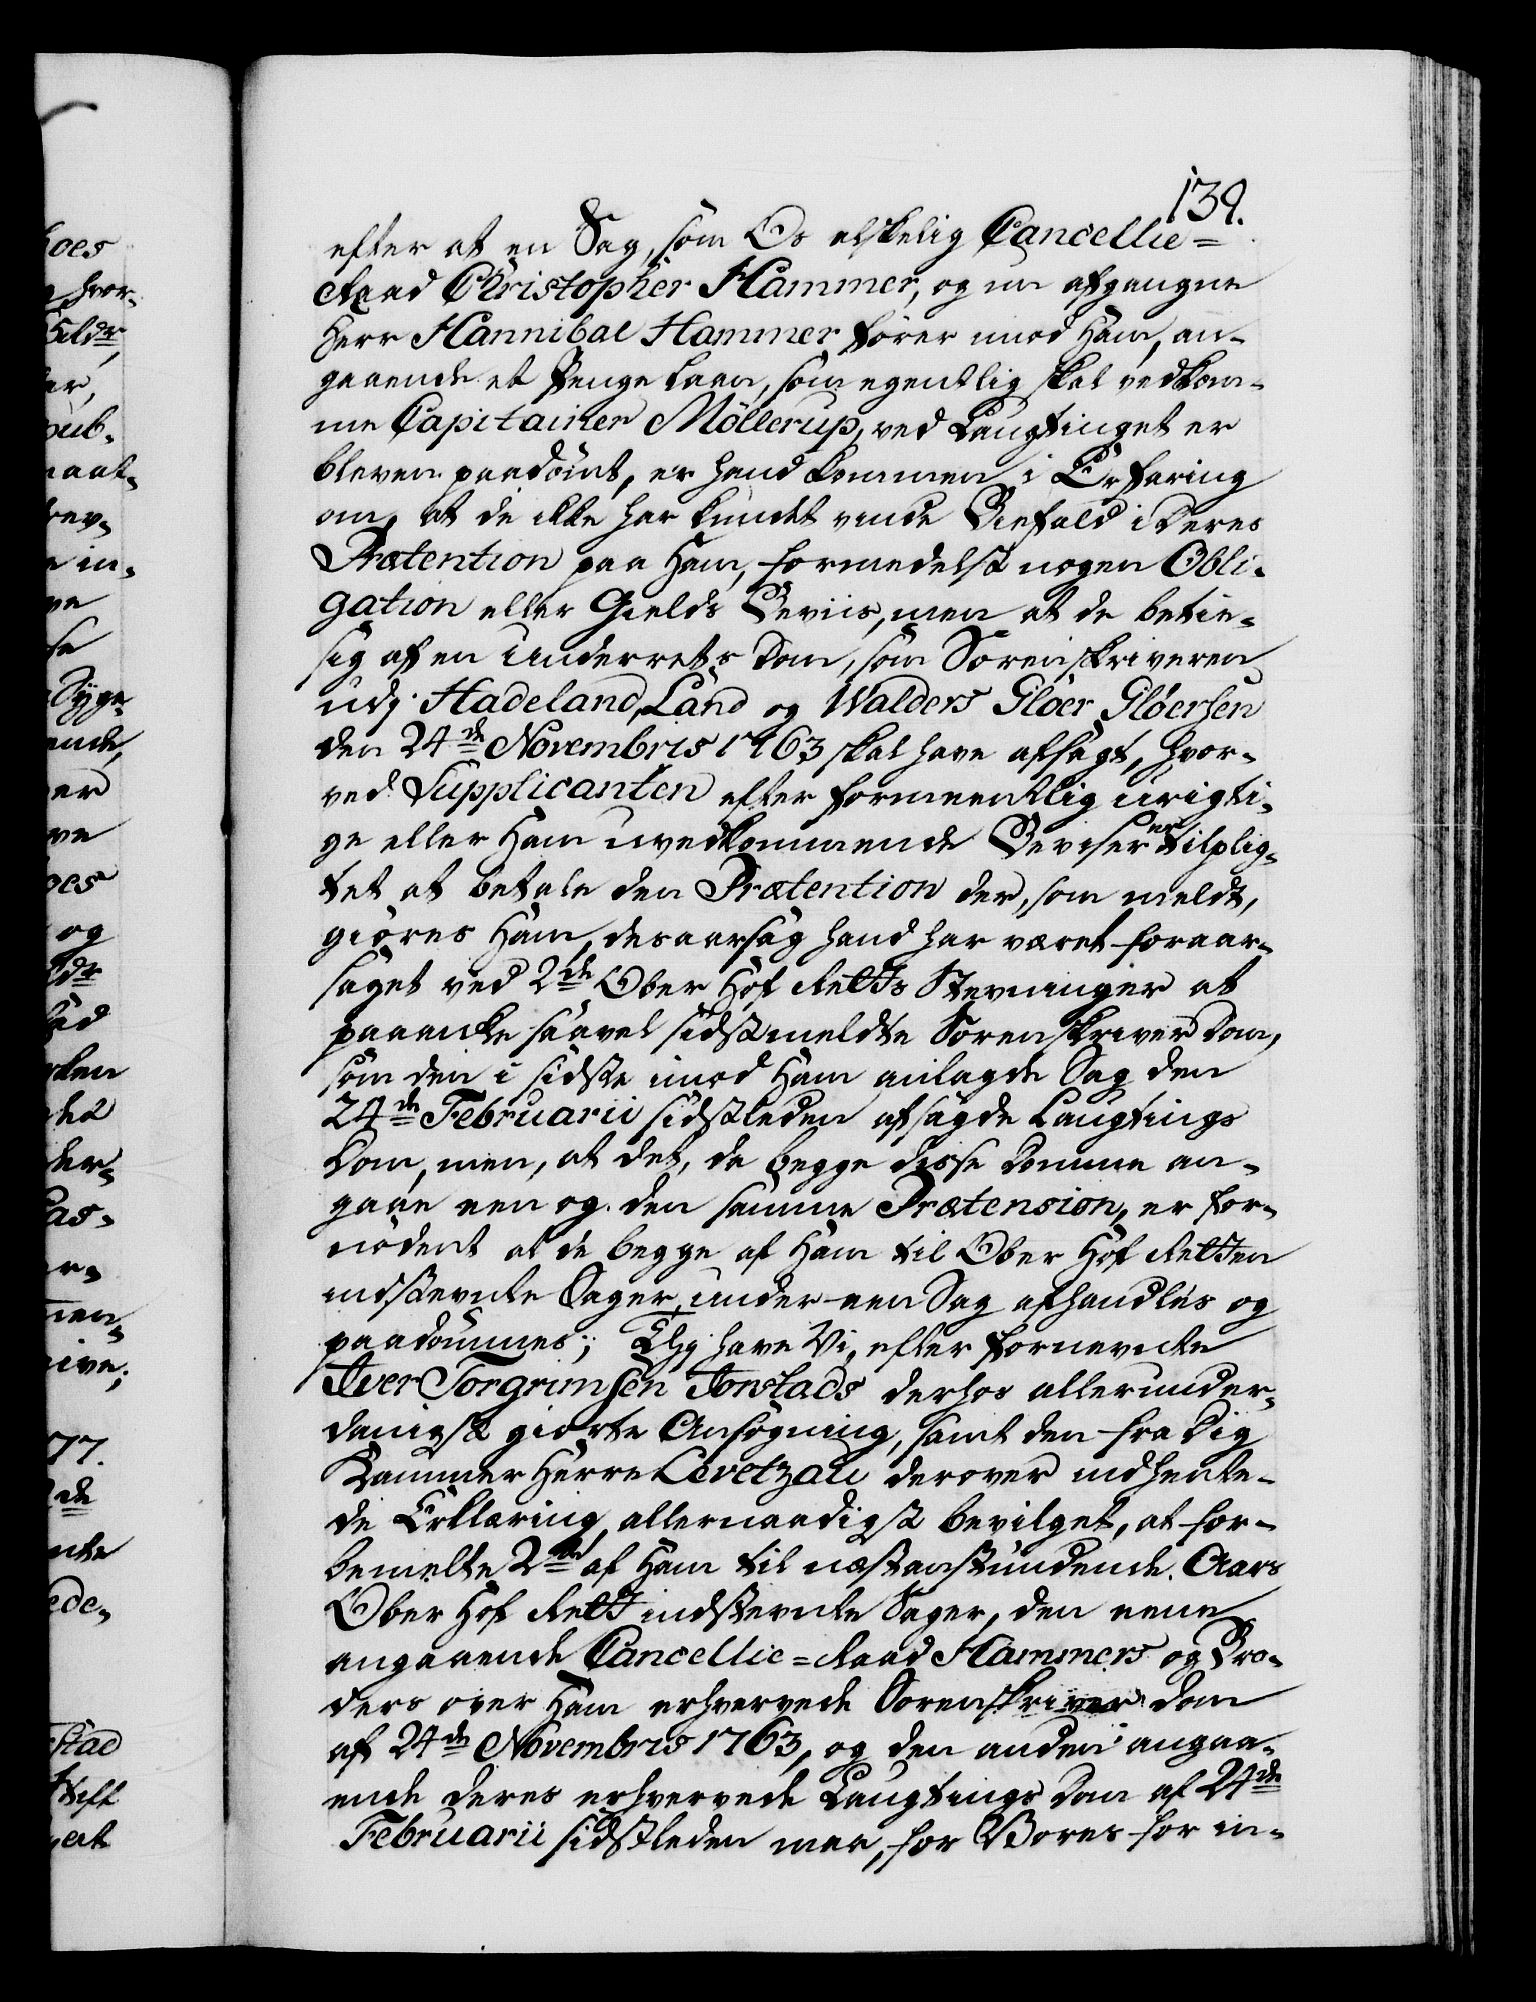 139.
efter at en Sag, som Os elskelig Cancellie=
Raad Christopher Hammer, og nu afgangne
Herr Hannibal Hammer fører imod Ham, an-
gaaende et Penge Laan, som egentlig skal vedkom-
me Capitainer Möllerup, ved Laugtinget er
bleven paadömt, er hand kommen i Erfaring
om, at de ikke har kundet vinde Biefald i deres
Prætention paa Ham, formedelst nogen Obli-
gation eller Gields Beviis, men at de betie-
sig af en Underrets Dom, som Sorenskriveren
udj Hadeland, Land og Walders Glöer Glöersen
den 24de Novembris 1763 skal have afsagt, hvor-
ved Supplicanten efter formeentlig urigti-
ge eller Ham uvedkommende Beviser er tilplig-
tet at betale den Prætention der, som meldt,
giöres Ham, desaarsag hand har været foraar-
saget ved 2de Ober Hof Retts Stevninger at
paaancke saavel sidstmeldte Sorenskriver Dom,
som den i sidste imod Ham anlagde Sag den
24de Februarii sidstleden afsagde Laugtings
Dom, men, at det, da begge disse Domme an-
gaae een og den samme Prætension, er for-
nödent at de begge af Ham til Ober Hof Retten
indstevnte Sager, under een Sag afhandles og
paadömmes; Thj have Vi, efter fornevnte
Iver Torgrimsen Tonstads derhos allerunder-
danigst giorte Ansögning, samt den fra Dig
Kammer Herre Levetzau derover indhente-
de Erklæring, allernaadigst bevilget, at for-
bemelte 2de af Ham til næstanstundende Aars
Ober Hof Rett indstevnte Sager, den eene
angaaende Cancellie=Raad Hammers og Bro-
ders over Ham erhvervede Sorenskriver Dom
af 24de Novembris 1763, og den anden angaa-
ende deres erhvervede Laugtings Dom af 24de
Februarii sidstleden maa, for Vores for in-